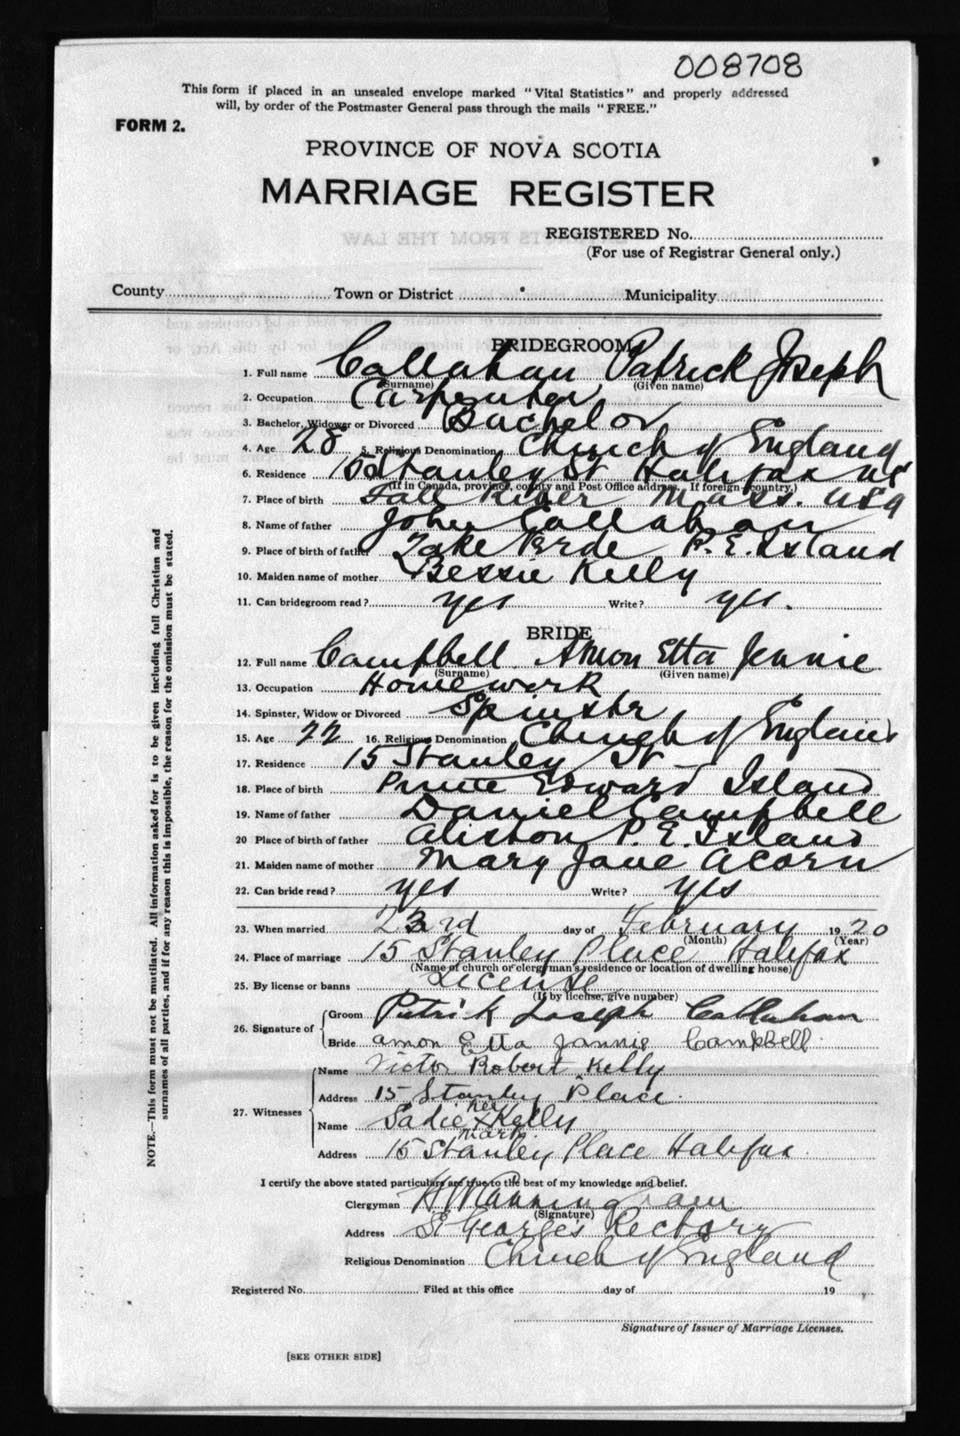 008708
This form if placed in an unsealed envelope marked "Vital Statistics" and properly addressed
will, by order of the Postmaster General pass through the mails "FREE."
FORM 2.
PROVINCE OF NOVA SCOTIA
MARRIAGE REGISTER
REGISTERED No.
(For use of Registrar General only.)
County Town or District Municipality
BRIDEGROOM
1. Full name Callahan Patrick Joseph
(Surname) (Given name)
2. Occupation Carpenter
3. Bachelor, Widower or Divorced Bachelor
4. Age 28 5. Religious Denomination Church of England
6. Residence 15 Stanley St Halifax NS
(If in Canada, province, county and Post Office address. If foreign country.)
7. Place of birth Fall River Mass. USA
8. Name of father John Callahan
9. Place of birth of father P.E. Island
10. Maiden name of mother Bessie Kelly
11. Can bridegroom read? yes Write? yes.
BRIDE
12. Full name Campbell Amon Etta Jennie
(Surname) (Given name)
13. Occupation Homework
14. Spinster, Widow or Divorced Spinster
15. Age 22 16. Religious Denomination Church of England
17. Residence 15 Stanley St
18. Place of birth Prince Edward Island
19. Name of father Daniel Campbell
20 Place of birth of father Aliston P.E. Island
21. Maiden name of mother Mary Jane Acorn
22. Can bride read? yes Write? yes
23. When married 23rd day of February 1920
(Month) (Year)
24. Place of marriage 15 Stanley Place Halifax
(Name of church or clergyman's residence or location of dwelling house)
25. By license or banns License
(If by license, give number)
26. Signature of Groom Patrik Joseph Callahan
Bride amon Etta Jannie Campbell
27. Witnesses Name Victor Robert Kelly
Address 15 Stanley Place.
her
Name Sadie x Kelly
mark.
Address 15 Stanley Place Halifax.
I certify the above stated particulars are true to the best of my knowledge and belief.
Clergyman H W
(Signature)
Address St George's Rectory
Religious Denomination Church of England
Registered No. Filed at this office day of 19
Signature of Issuer of Marriage Licenses.
[SEE OTHER SIDE]
NOTE.—This form must not be mutilated. All information asked for is to be given including full Christian and
surnames of all parties, and if for any reason this is impossible, the reason for the omission must be stated.